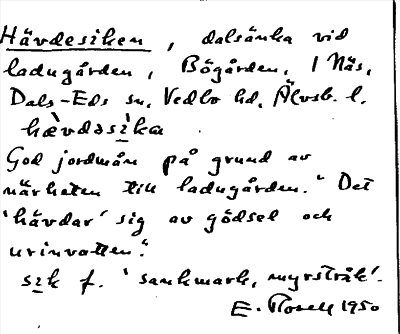 Hävdesiken, dalsänka vid
ladugården, Bögården, 1 Näs,
Dals-Eds sn, Vedbo hd, Älvsb. l.
hæ̀vdəsi̱ka
God jordmån på grund av
närheten till ladugården." Det
'hävdar' sig av gödsel och
urinvatten."
si̱k f. 'sankmark, myrstråk'.
E. Rosell 1950